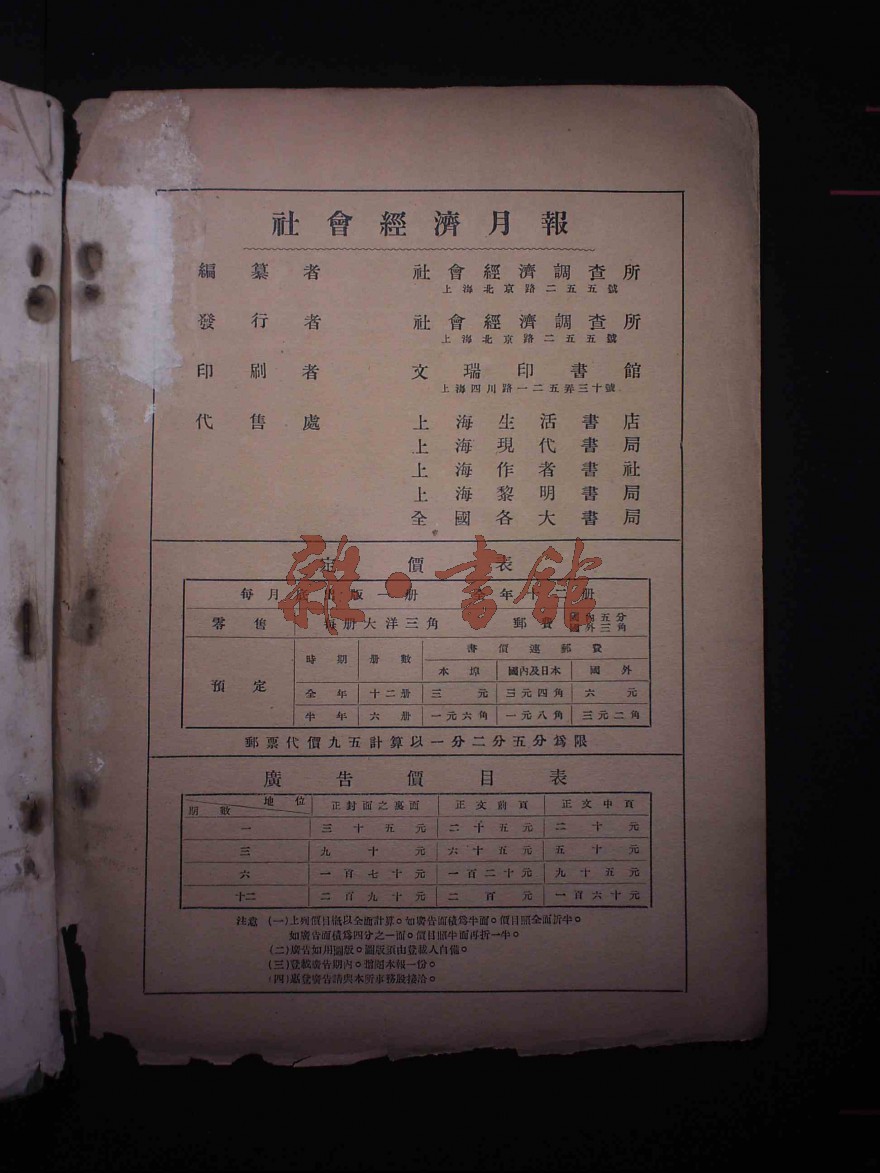 社會經濟月報
編纂者 社會經濟調查所
上海北京路二五五號
發行者 社會經濟調查所
上海北京路二五五號
印刷者 文瑞印書館
上海四川路一二五弄三十號
代售處 上海生活書店
上海現代書局
上海作者書社
上海黎明書局
全國各大書局
雜·書館
定價表
每月底出版一册 全年十二册
零售 每册大洋三角 郵費 國內五分 國外三角
預定 時期 册數 書價連郵費
本埠 國內及日本 國外
全年 十二册 三元 三元四角 六元
半年 六册 一元六角 一元八角 三元二角
郵票代價九五計算以一分二分五分爲限
廣告價目表
地位 期數 正封面之裏面 正文前頁 正文中頁
一 三十五元 二十五元 二十元
三 九十元 六十五元 五十元
六 一百七十元 一百二十元 九十五元
十二 二百九十元 二百元 一百六十元
注意 (一)上列價目概以全面計算。如廣告面積爲半面。價目照全面折半。
如廣告面積爲四分之一面。價目照半面再折一半。
(二)廣告如用圖版。圖版須由登載人自備。
(三)登載廣告期內。贈閱本報一份。
(四)惠登廣告請與本所事務股接洽。